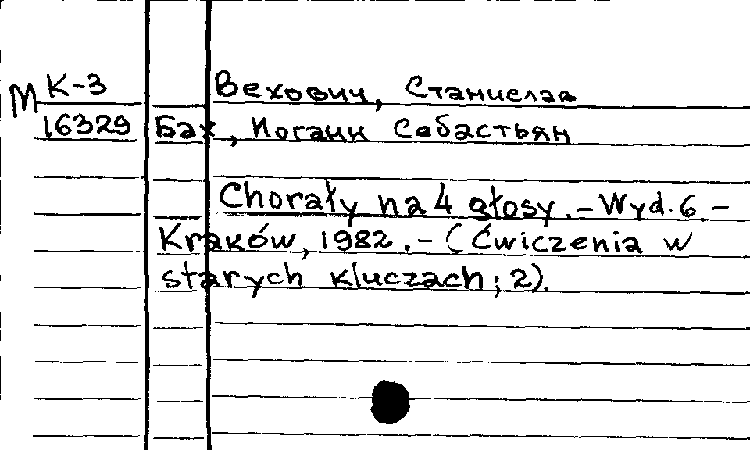 М К-3 Вехович, Станислав
16329 Бах, Иоганн Себастьян
Chorały na 4 głosy. – Wyd. 6. –
Kraków, 1982. – (Ćwiczenia w
starych kluczach; 2).